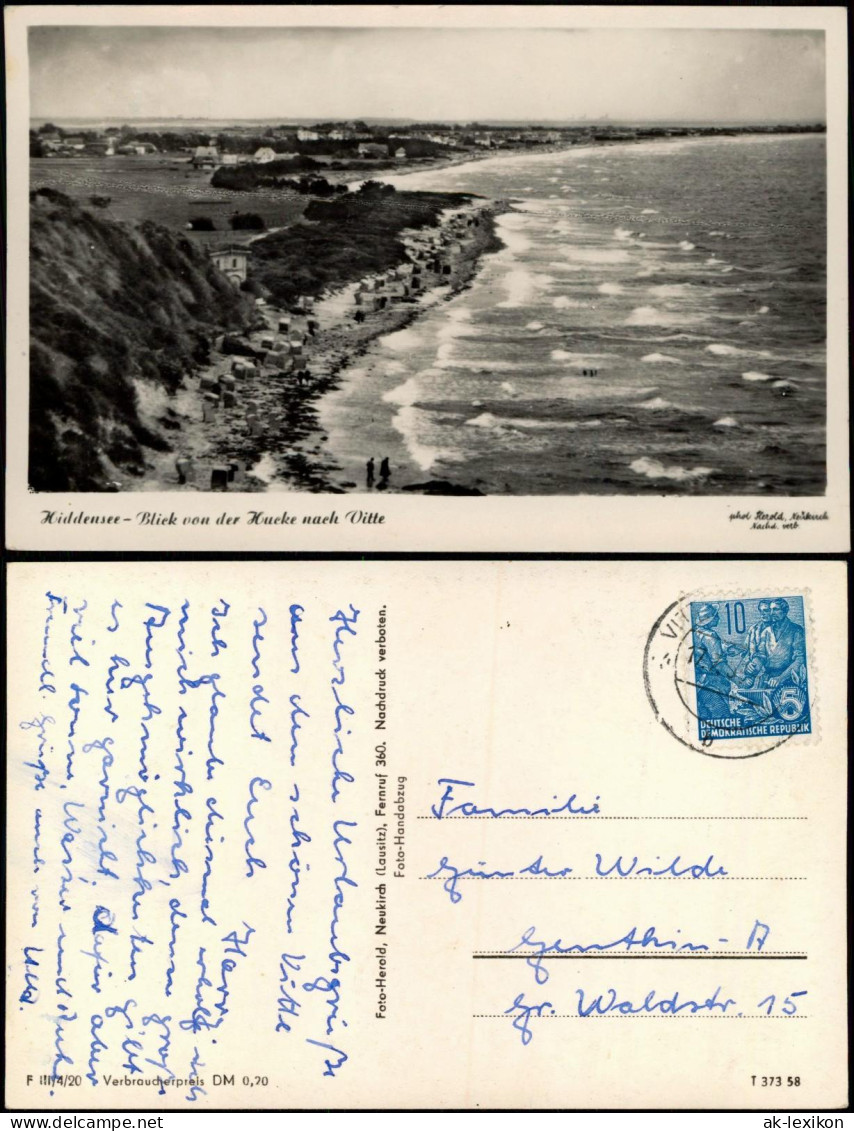 Hiddensee – Blick von der Hucke nach Vitte
phot Herold, Neukirch
Nachd. verb.
Herzliche Urlaubsgrüße
aus dem schönen Vitte
sendet Euch Harry
Ich glaube diesmal erhole ich
mich wirklich, denn große
Ausgehmöglichkeiten gibt
es hier garnicht. Dafür aber
viel Sonne, Wasser und Ruhe.
Freundl. Grüße auch von
Foto-Herold, Neukirch (Lausitz), Fernruf 360. Nachdruck verboten.
Foto-Handabzug
10
5
DEUTSCHE
DEMOKRATISCHE REPUBLIK
b
Familie
Günter Wilde
Genthin-A
Gr. Waldstr. 15
F III/4/20 Verbraucherpreis DM 0,20
T 373 58
www.delcampe.net
ak-lexikon